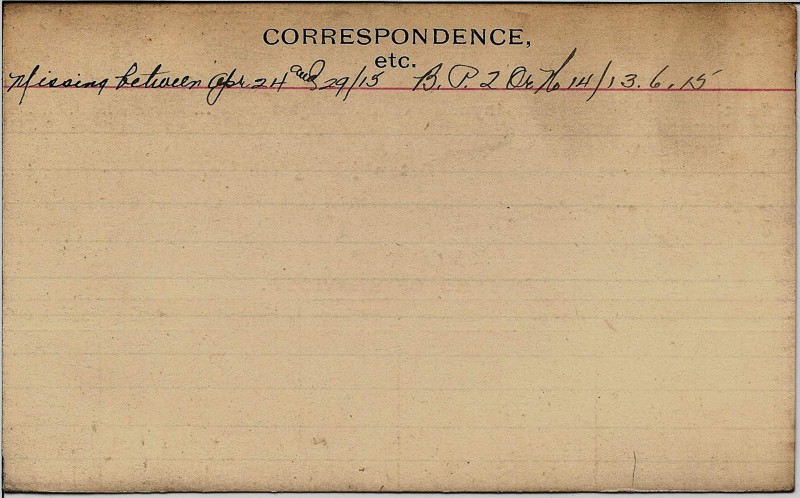 CORRESPONDENCE,
etc.
Missing between Apr 24 and 29/15 B. P. 2 Or. No 14/13.6.15